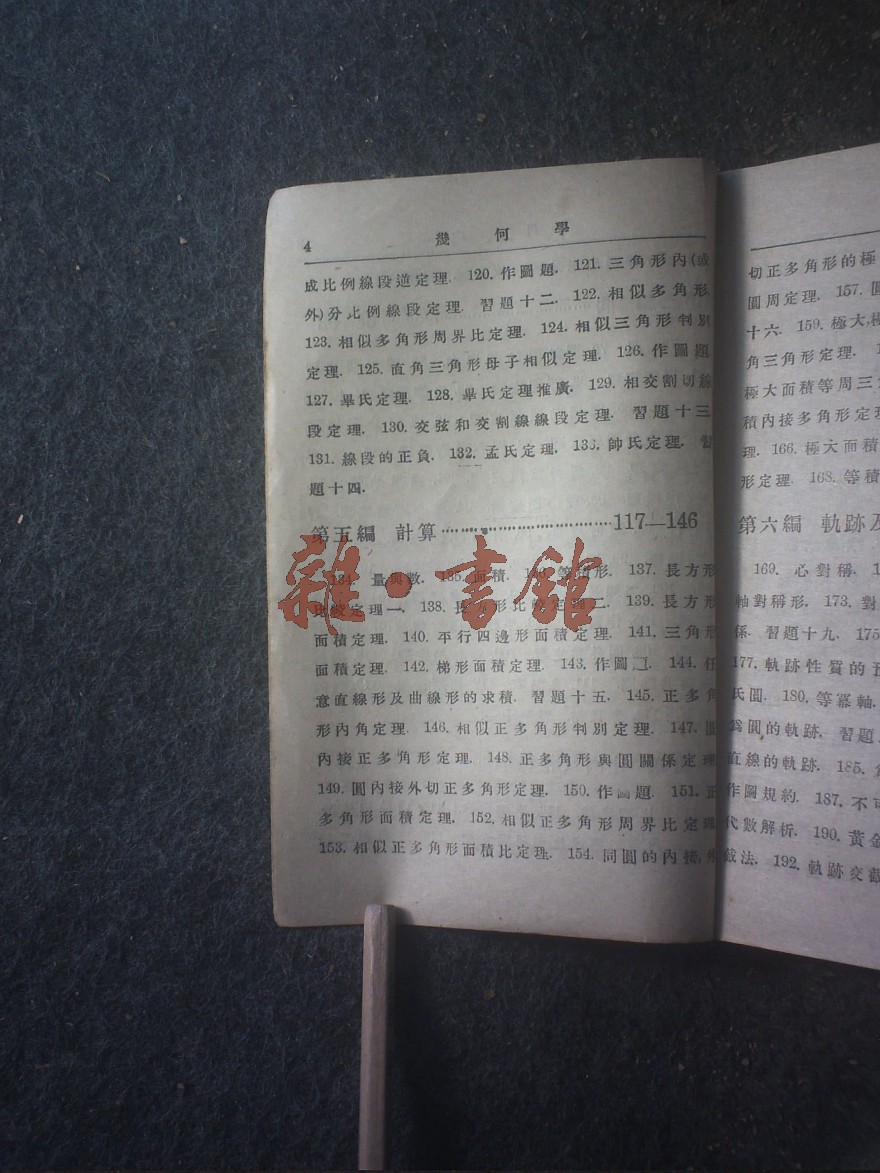 4 幾何學
成比例線段逆定理. 120. 作圖題. 121. 三角形內(或
外)分比例線段定理. 習題十二. 122. 相似多角形.
123. 相似多角形周界比定理. 124. 相似三角形判別
定理. 125. 直角三角形母子相似定理. 126. 作圖題
127. 畢氏定理. 128. 畢氏定理推廣. 129. 相交割切線
段定理. 130. 交弦和交割線線段定理. 習題十三
131. 線段的正負. 132. 孟氏定理. 133. 帥氏定理. 習
題十四.
第五編 計算 117—146
134. 量與數. 135. 面積. 136. 等積形. 137. 長方形
比較定理一. 138. 長方形比較定理二. 139. 長方形
面積定理. 140. 平行四邊形面積定理. 141. 三角形
面積定理. 142. 梯形面積定理. 143. 作圖題. 144. 任
意直線形及曲線形的求積. 習題十五. 145. 正多角
形內角定理. 146. 相似正多角形判別定理. 147. 圓
內接正多角形定理. 148. 正多角形與圓關係定理
149. 圓內接外切正多角形定理. 150. 作圖題. 151. 正
多角形面積定理. 152. 相似正多角形周界比定理
153. 相似正多角形面積比定理. 154. 同圓的內接,外
雜·書館
切正多角形的極
圓周定理. 157. 圓
十六. 159. 極大,極
角三角形定理.
極大面積等周三
積內接多角形定理
理. 166. 極大面積
形定理. 168. 等積
第六編 軌跡及
169. 心對稱.
軸對稱形. 173. 對
係. 習題十九. 175
177. 軌跡性質的
氏圓. 180. 等冪軸.
爲圓的軌跡. 習題
直線的軌跡. 185.
作圖規約. 187. 不可
代數解析. 190. 黃金
截法. 192. 軌跡交截